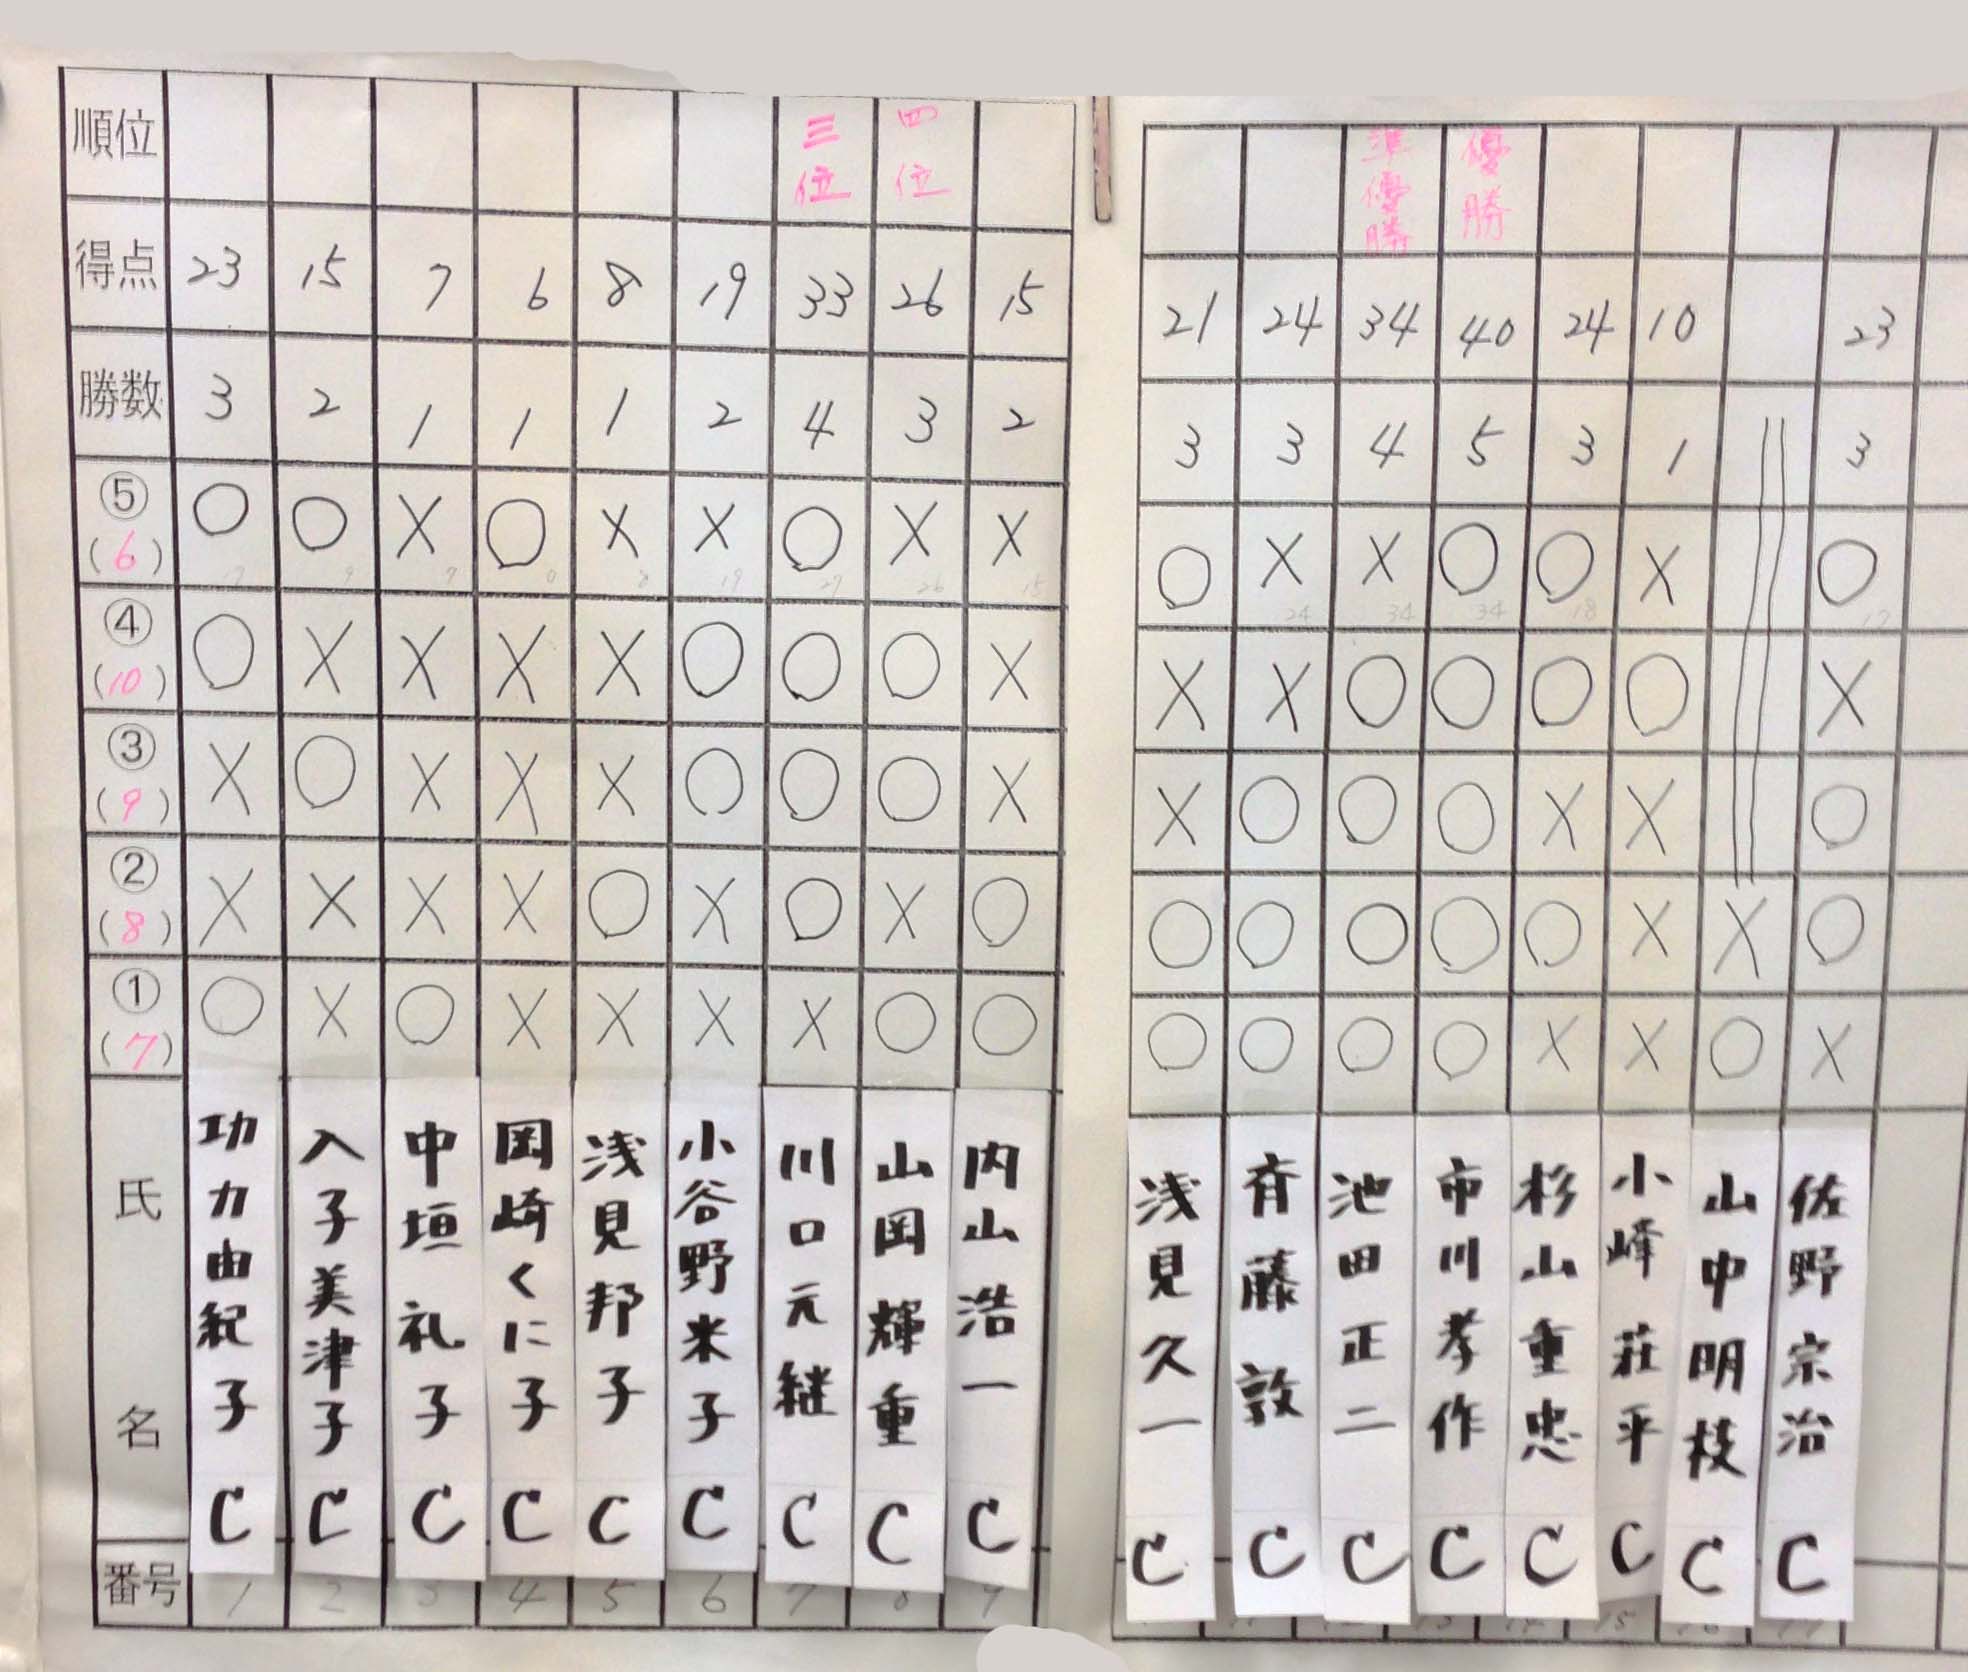 順位 三位 四位 準優勝 優勝
得点 23 15 7 6 8 19 33 26 15 21 24 34 40 24 10 23
勝数 3 2 1 1 1 2 4 3 2 3 3 4 5 3 1 3
⑤(6) ○ ○ × ○ × × ○ × × ○ × × ○ ○ × ○
17 9 7 0 8 19 27 26 15 24 34 34 18 17
④(10) ○ × × × × ○ ○ ○ × × × ○ ○ ○ ○ ×
③(9) × ○ × × × ○ ○ ○ × × ○ ○ ○ × × ○
②(8) × × × × ○ × ○ × ○ ○ ○ ○ ○ ○ × × ○
①(7) ○ × ○ × × × × ○ ○ ○ ○ ○ ○ × × ○ ×
氏名
功力由紀子 C
入子美津子 C
中垣礼子 C
岡崎くに子 C
浅見邦子 C
小谷野米子 C
川口元継 C
山岡輝重 C
内山浩一 C
浅見久一 C
斉藤敦 C
池田正二 C
市川孝作 C
杉山重忠 C
小峰荘平 C
山中明枝 C
佐野宗治 C
番号 1 2 3 4 5 6 7 8 9 11 12 13 14 15 16 17